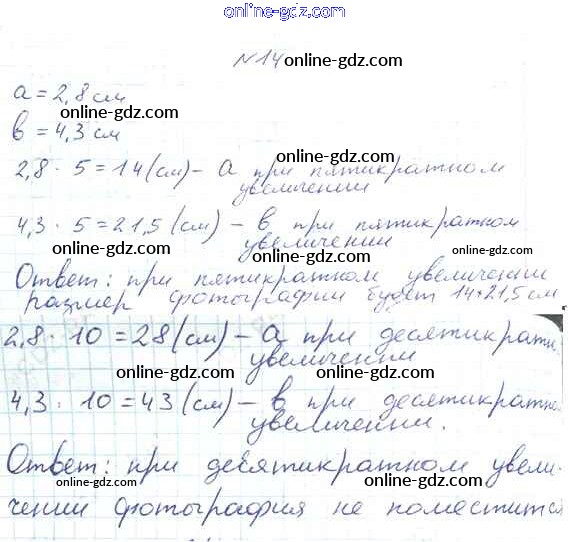 online-gdz.com
№14 online-gdz.com
a = 2,8 см
online-gdz.com
в = 4,3 см
online-gdz.com
2,8 · 5 = 14 (см) – a при пятикратном
увеличении
online-gdz.com
4,3 · 5 = 21,5 (см) – в при пятикратном
увеличении
online-gdz.com
online-gdz.com
Ответ: при пятикратном увеличении
размер фотографии будет 14×21,5 см
online-gdz.com
2,8 · 10 = 28 (см) – a при десятикратн
увеличении
online-gdz.com
online-gdz.com
4,3 · 10 = 43 (см) – в при десятикратно
увеличении.
online-gdz.com
Ответ: при десятикратном увели-
online-gdz.com
чении фотография не поместится
online-gdz.com